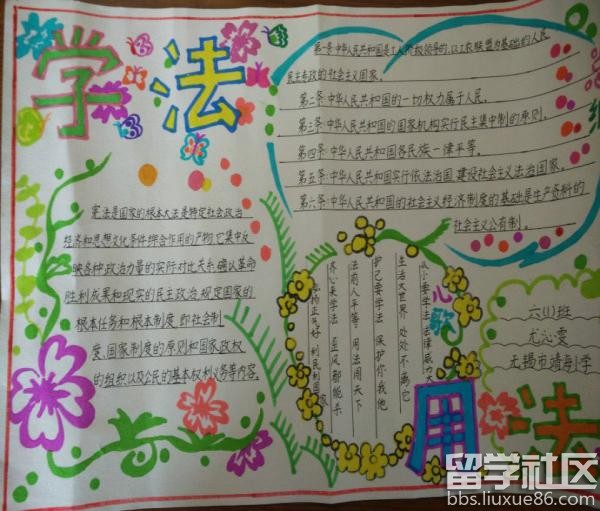 学法
第一条中华人民共和国是工人阶级领导的,以工农联盟为基础的人民
民主专政的社会主义国家。
第二条中华人民共和国的一切权力属于人民。
第三条中华人民共和国的国家机构实行民主集中制的原则。
第四条中华人民共和国各民族一律平等。
第五条中华人民共和国实行依法治国,建设社会主义法治国家。
第六条中华人民共和国的社会主义经济制度的基础是生产资料的
社会主义公有制。
宪法是国家的根本大法是特定社会政治
经济和思想文化条件综合作用的产物,它集中反
映各种政治力量的实行对比关系,确认革命
胜利成果和现实的民主政治,规定国家的
根本任务和根本制度,即社会制
度、国家制度的原则和国家政权
的组织以及公民的基本权利义务等内容。
儿歌
从小要学法 法律威力大
生活大世界 处处不离它
护己要学法 保护你我他
法前人平等 用法闯天下
齐心来学法 歪风都能杀
正气好 利民利国家
六(1)班
尤沁雯
无锡市靖海小学
用法
留学社区
bbs.liuxue86.com